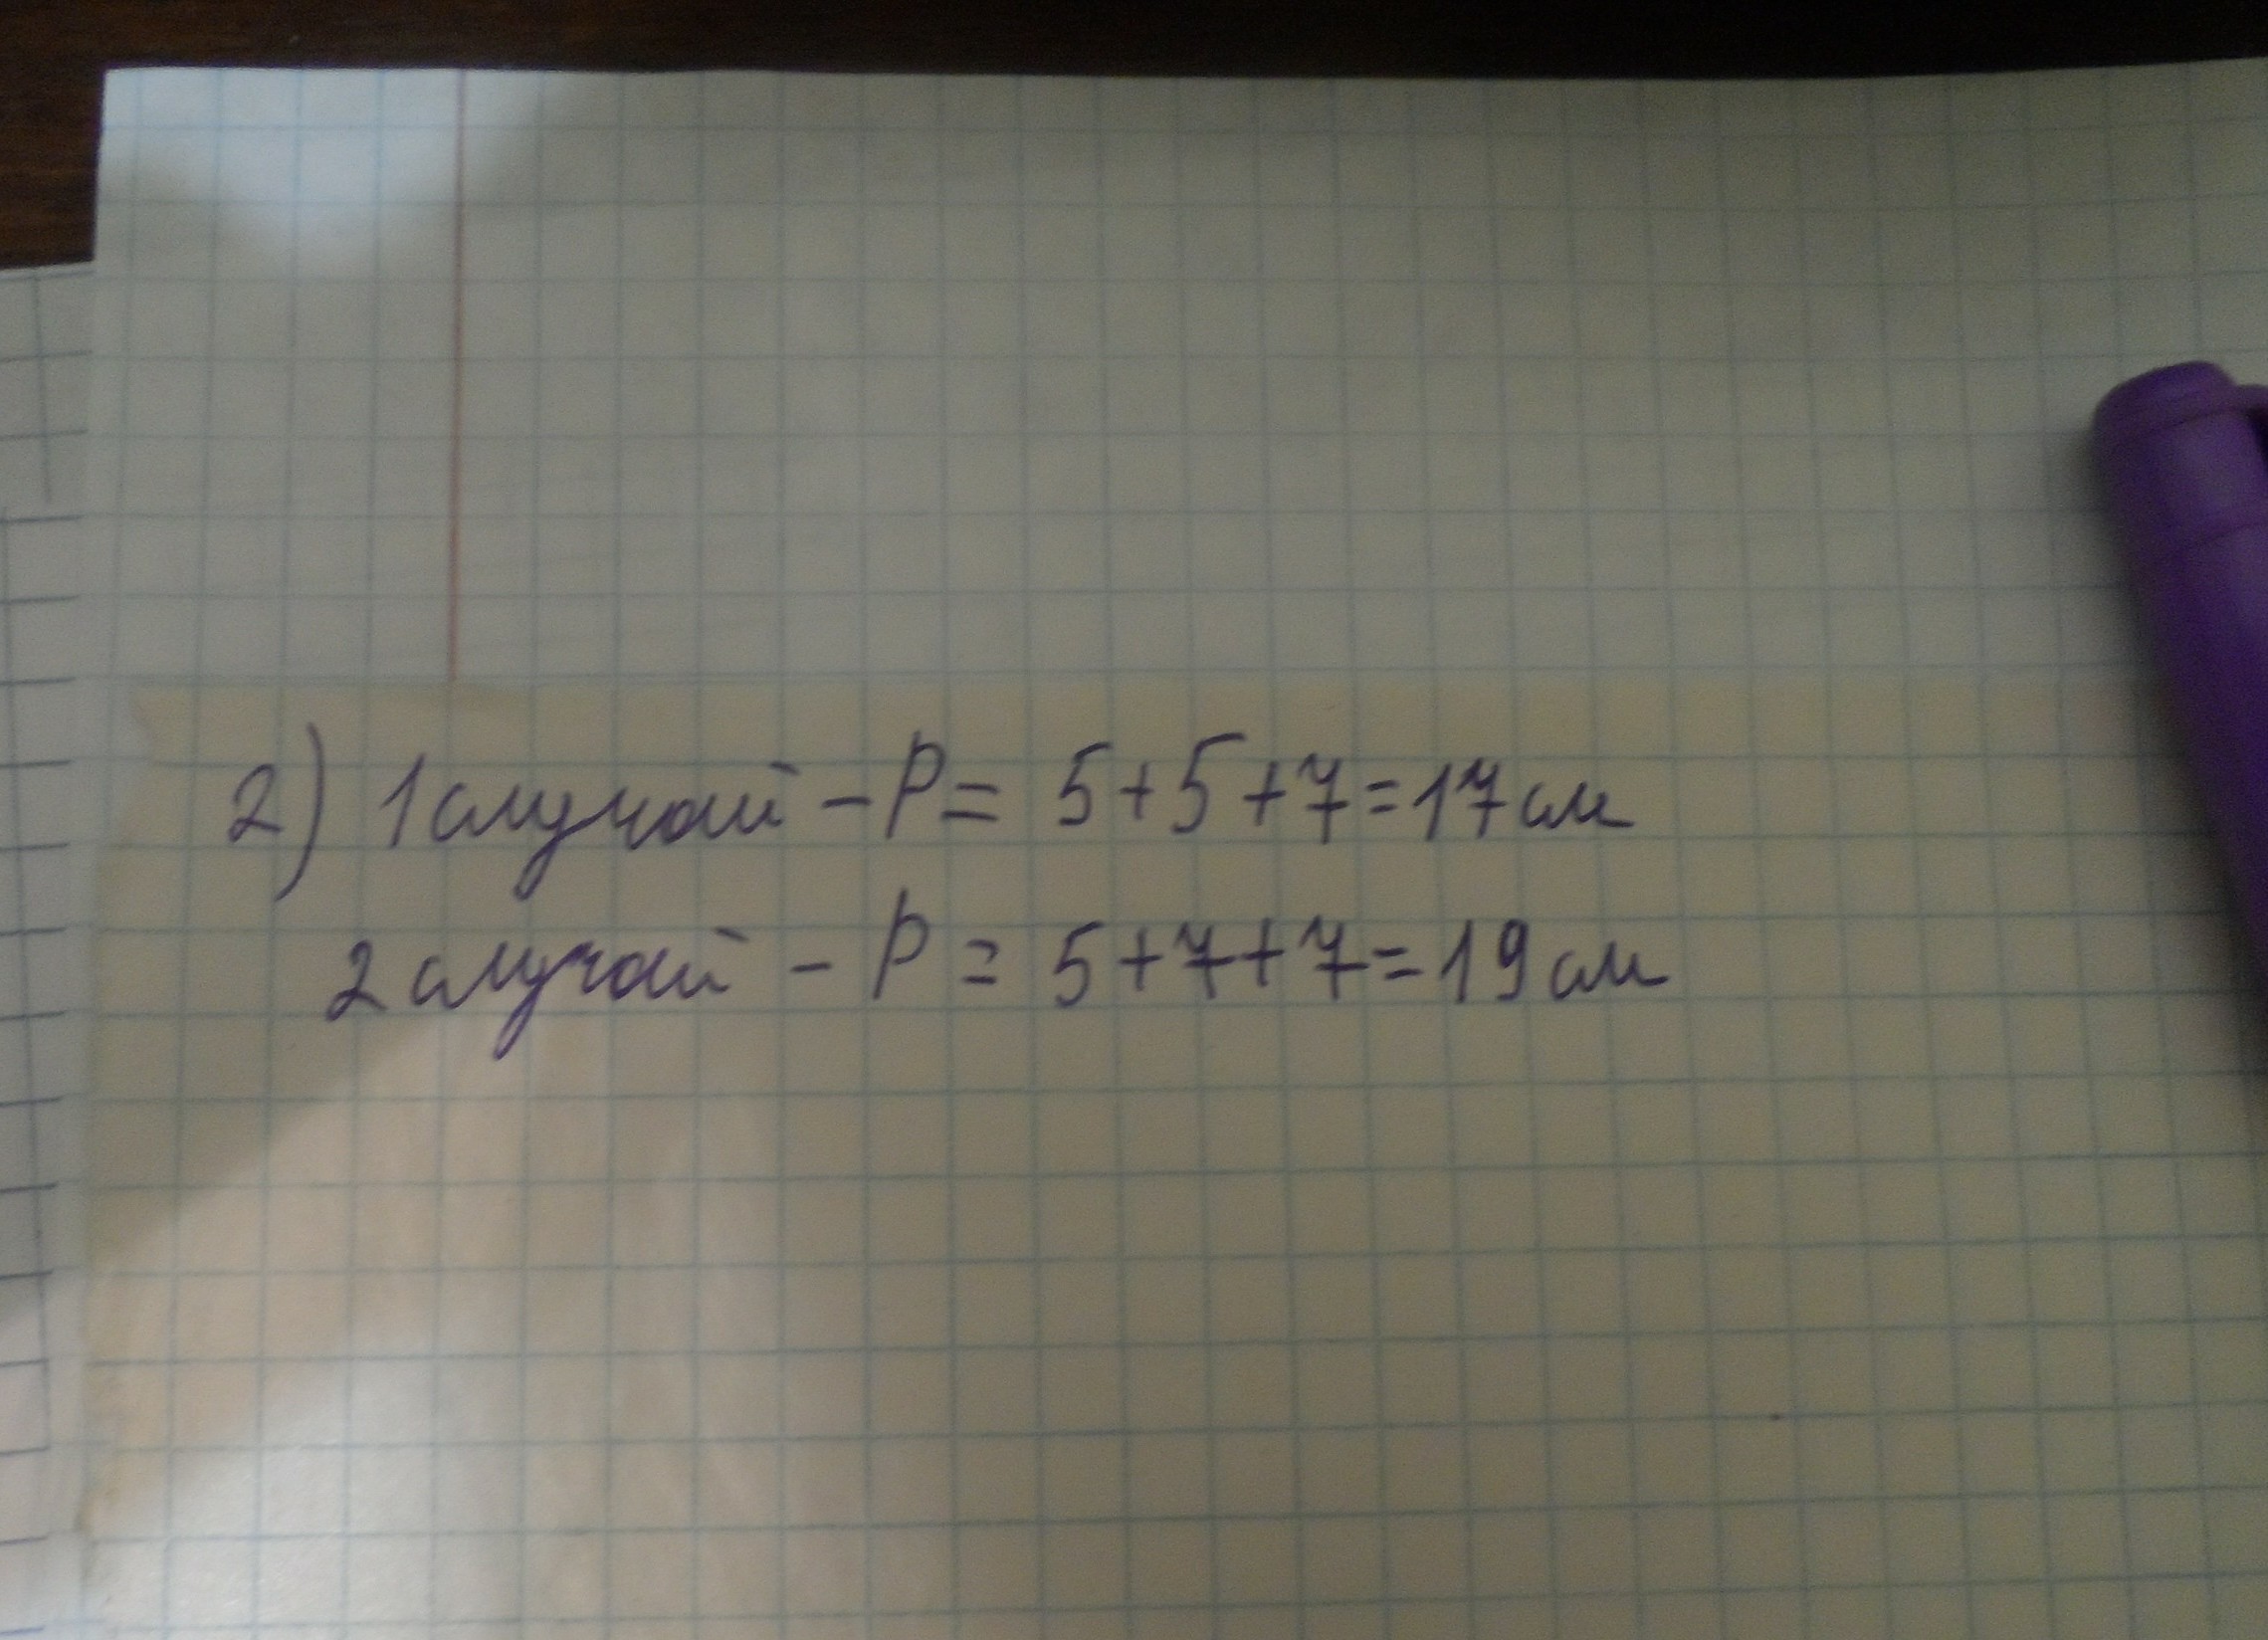 2) 1 случай – P = 5+5+7=17 см
2 случай – P = 5+7+7=19 см